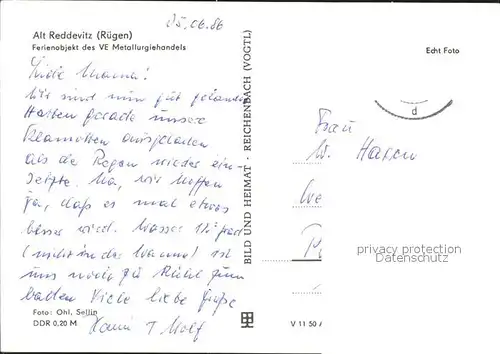 25.06.86
Alt Reddevitz (Rügen)
Ferienobjekt des VE Metallurgiehandels
Echt Foto
Liebe Mama!
Wir sind nun gut gelandet
Hatten gerade unsere
Klamotten ausgeladen
als der Regen wieder ein-
setzte. Na, wir hoffen
ja, daß es mal etwas
besser wird. Wasser 12° grad
(nicht in der Wanne) ist
uns noch zu kühl zum
baden Viele liebe Grüße
Wolf
Foto: Ohl, Sellin
DDR 0,20 M
BILD UND HEIMAT · REICHENBACH (VOGTL)
V 11 50 A
d
Frau
W. Haren
privacy protection
Datenschutz